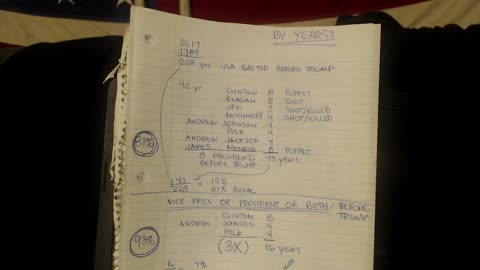 BY YEARS:
2017
1789
228 yrs USA EXISTED BEFORE TRUMP
42 yr
CLINTON 8 PUPPET
REAGAN 8 SHOT
JFK 3 SHOT/KILLED
MCKINLEY 4 SHOT/KILLED
ANDREW JOHNSON 4
POLK 4
ANDREW JACKSON 4
JAMES MONROE 8 PUPPET
81%
8 PRESIDENTS 43 years
BEFORE TRUMP
143 = 19%
228 81% ROYAL
VICE PRES OR PRESIDENT OR BOTH: BEFORE TRUMP
CLINTON 8
ANDREW JOHNSON 4
POLK 4
93%
(3X) 16 years
16 = 7%